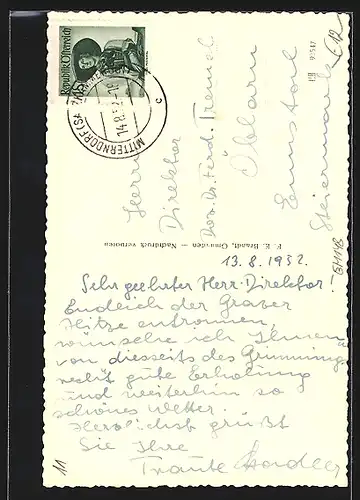 Republik Österreich
MITTERNDORF (SA
14.8.52-1
c
Herrn
Direktor
Ferd. Tremel
Öblarn
Ennstal
Steiermark
F. E. Brandt, Gmunden — Nachdruck verboten
13. 8. 1952.
Sehr geehrter Herr Direktor!
Endlich der Grazer
Hitze entronnen,
wünsche ich Ihnen
von diesseits des Grimming
recht gute Erholung
und weiterhin so
schönes Wetter.
Herzlichst grüßt
Sie Ihre
Traute